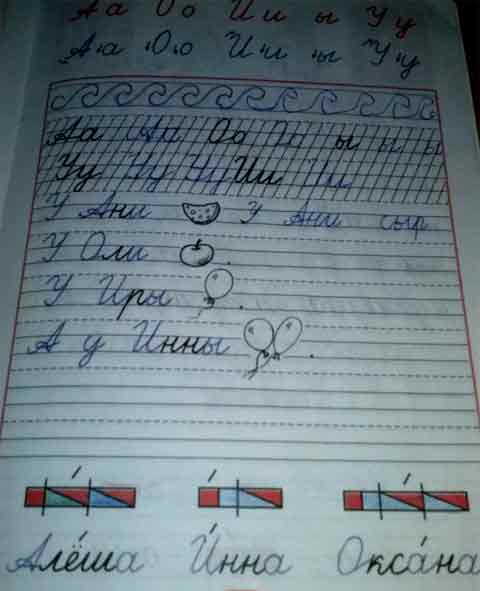 Аа Оо Ии ы Уу
Аа Оо Ии ы Уу
Аа Аа Оо Оо ы ы ы
Уу Уу Уу Ии Ии
У Ани У Ани сыр
У Оли .
У Иры .
А у Инны .
Алёша И́нна Окса́на